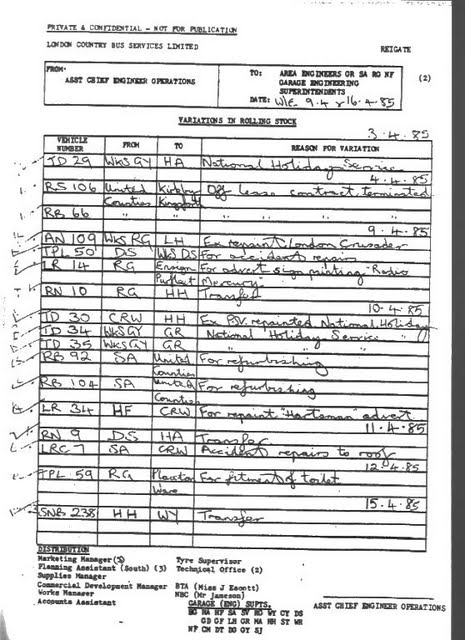 PRIVATE & CONFIDENTIAL - NOT FOR PUBLICATION
LONDON COUNTRY BUS SERVICES LIMITED REIGATE
FROM- ASST CHIEF ENGINEER OPERATIONS
TO: AREA ENGINEERS OR SA RG NF
GARAGE ENGINEERING
SUPERINTENDENTS
(2)
DATE: W/E 9.4 & 16.4.85
VARIATIONS IN ROLLING STOCK
3.4.85
VEHICLE NUMBER FROM TO REASON FOR VARIATION
TD 29 WKS GY HA National Holiday Service
4.4.85
RS 106 United Kirkby Off lease contract terminated
Counties Kingsbury
RB 66 " " " " " "
9.4.85
AN 109 WKS RG LH Ex repaint London Crusader
TPL 50 DS WKS DS For accident repairs
LR 14 RG Ensign For advert sign printing "Radio
Purfleet Mercury"
RN 10 RG HH Transfer
10.4.85
TD 30 CRW HH Ex PSV. repainted National Holiday
TD 34 WKS GY GR National Holiday Service
TD 35 WKS GY GR " " "
RB 92 SA United For refurbishing
Counties
RB 104 SA United For refurbishing
Counties
LR 34 HF CRW For repaint "Hartsman" advert
11.4.85
RN 9 DS HA Transfer
LRC 7 SA CRW Accident repairs to roof
12.4.85
TPL 59 RG Plaxton For fitment of toilet
Ware
15.4.85
SNB 238 HH WY Transfer
DISTRIBUTION
Marketing Manager(3) Tyre Supervisor
Planning Assistant (South) (3) Technical Office (2)
Supplies Manager
Commercial Development Manager BTA (Miss J Escott)
Works Manager NBC (Mr Jameson)
Accounts Assistant GARAGE (ENG) SUPTS.
ASST CHIEF ENGINEER OPERATIONS
HA HF SA SV RG WY CY DS
GD GF LH GR MA HH ST WR
NF CM DT DG GY SJ